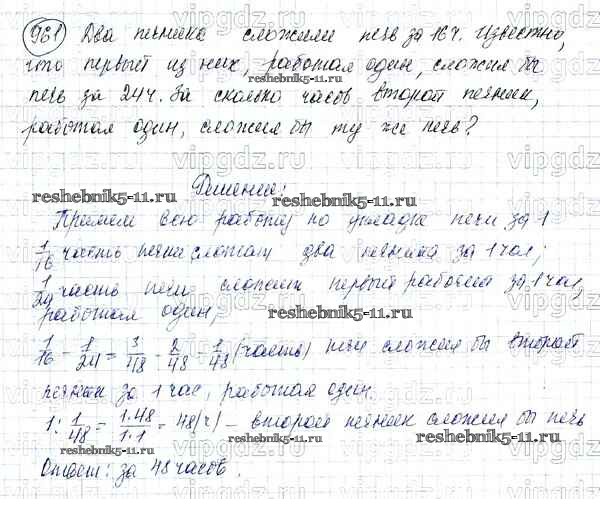 961 Два печника сложили печь за 16 ч. Известно,
что первый из них, работая один, сложил бы
печь за 24 ч. За сколько часов второй печник,
работая один, сложил бы ту же печь?
Решение:
reshebnik5-11.ru
Примем всю работу по укладке печи за 1
1/16 часть печи сложат два печника за 1 час;
1/24 часть печи сложит первый рабочий за 1 час,
работая один;
1/16 - 1/24 = 3/48 - 2/48 = 1/48 (часть) печи сложил бы второй
печник за 1 час, работая один.
1 : 1/48 = 1·48/1·1 = 48 (ч) – второй печник сложил бы печь
Ответ: за 48 часов.
vipgdz.ru